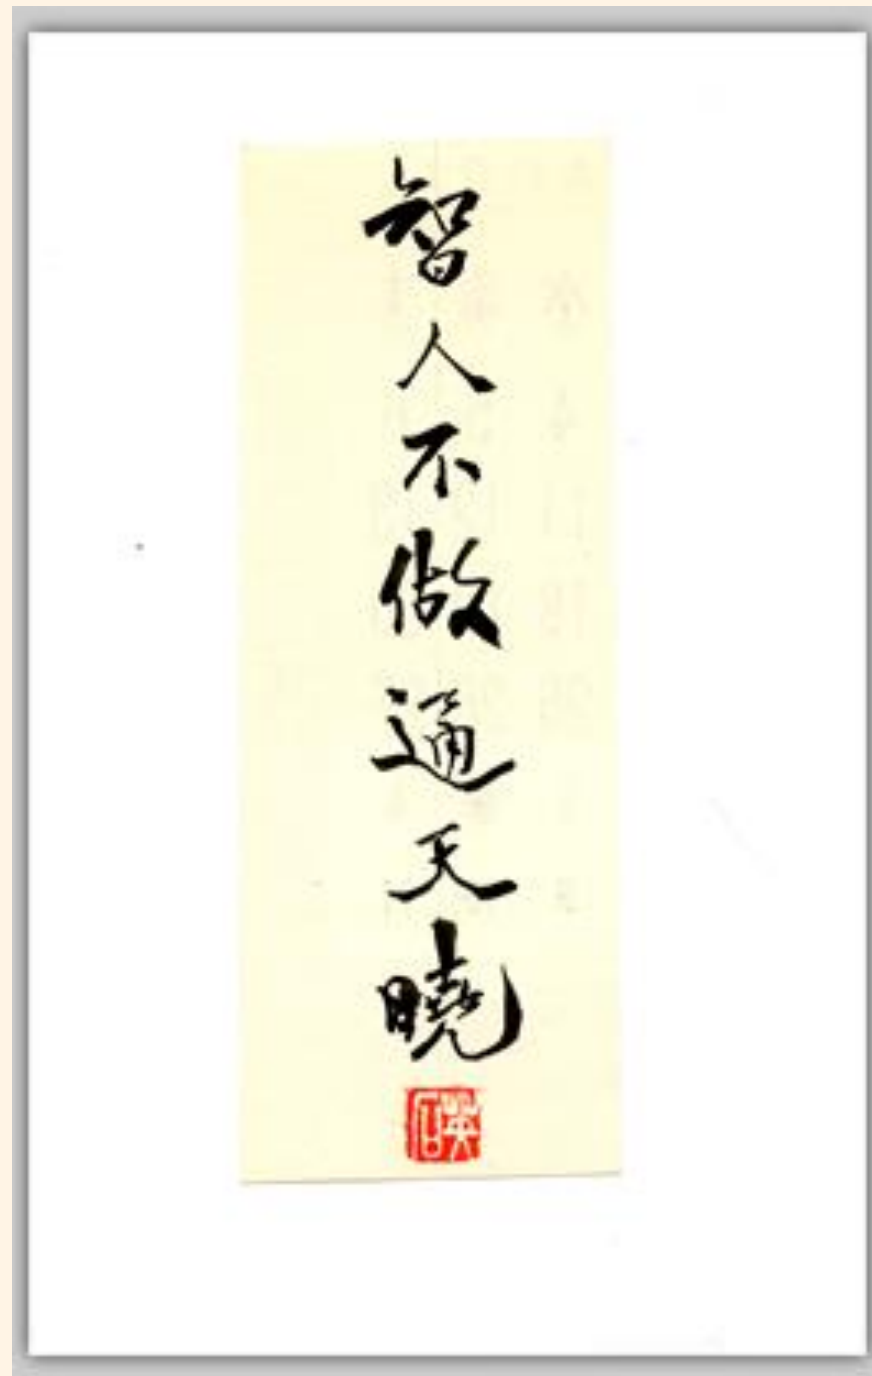 智人不做通天曉